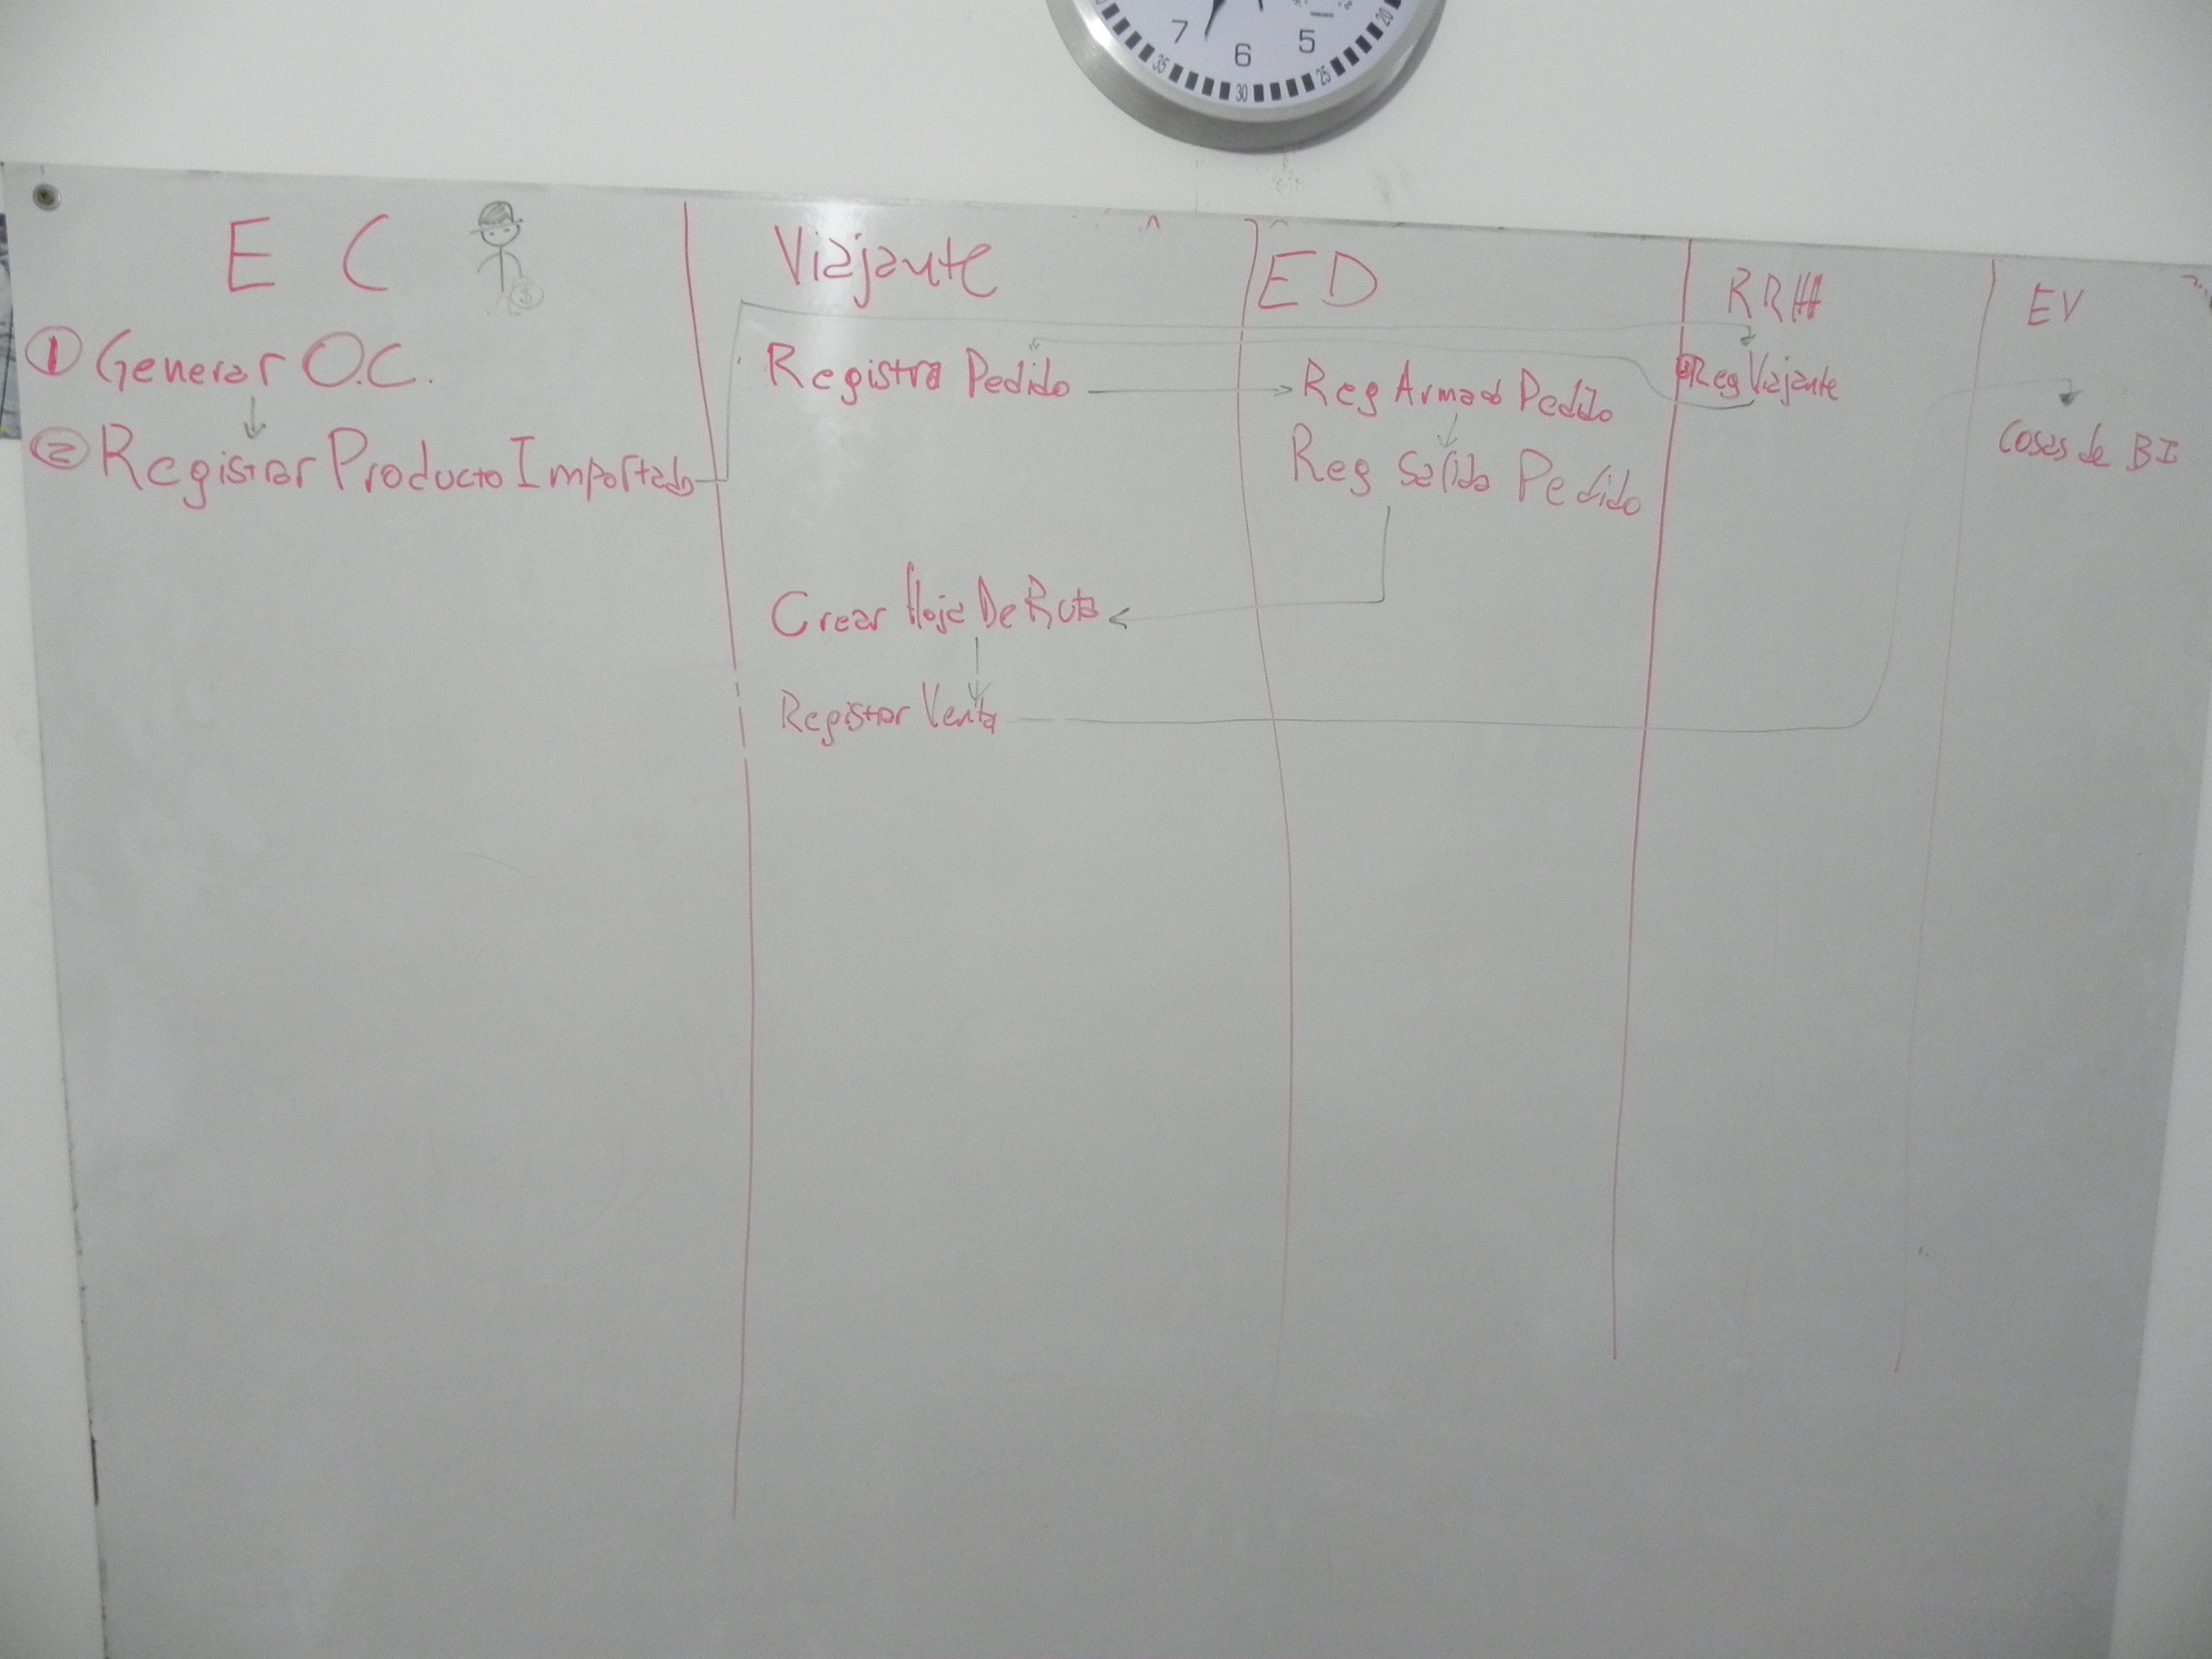 7 6 5
35 30 25 20
E C
$
① Generar O.C.
② Registrar Producto Importado
Viajante
Registra Pedido
Crear Hoja De Ruta
Registrar Venta
ED
Reg Armado Pedido
Reg Salida Pedido
RRHH
Reg Viajante
EV
Cosas de BI